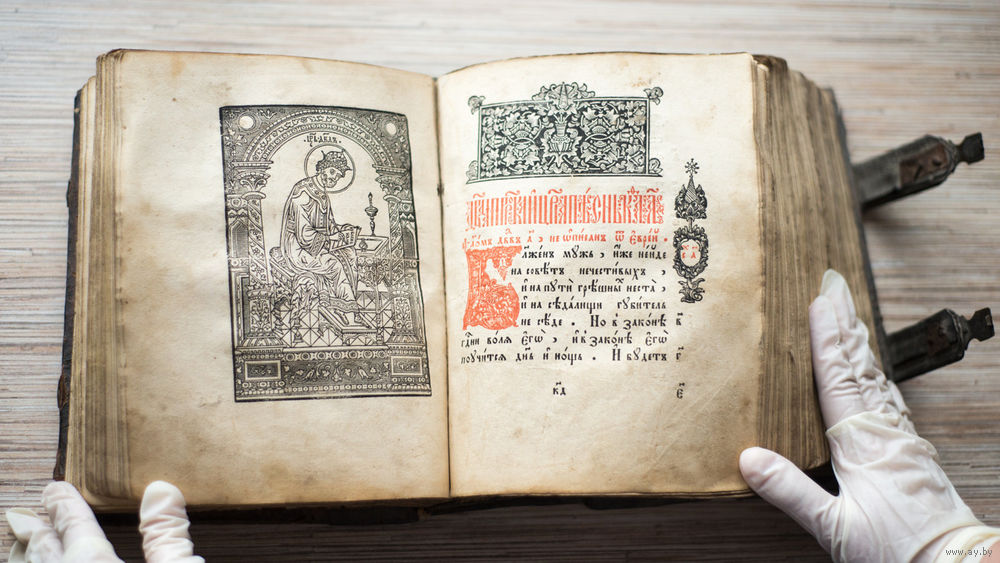 црь дв҃дъ
Ѱало́мъ дв҃дъ а҃, не ѡ҆пи́санъ ѿ є҆вре́й.
Бл҃же́нъ мꙋ́жъ, и҆́же не и҆́де
на совѣ́тъ нечести́выхъ,
и҆ на пꙋтѝ грѣ́шныⷯ не ста̀,
и҆ на сѣда́лищи гꙋби́тель
не сѣ́де. Но в̾ зако́нѣ в҃
гдⷭ҇ни во́лѧ є҆гѡ̀, и҆ в̾ зако́нѣ є҆гѡ̀
поꙋчи́тсѧ дн҃ь и҆ но́щь. И҆ бꙋ́детъ г҃
к҃д є҃
www.ay.by